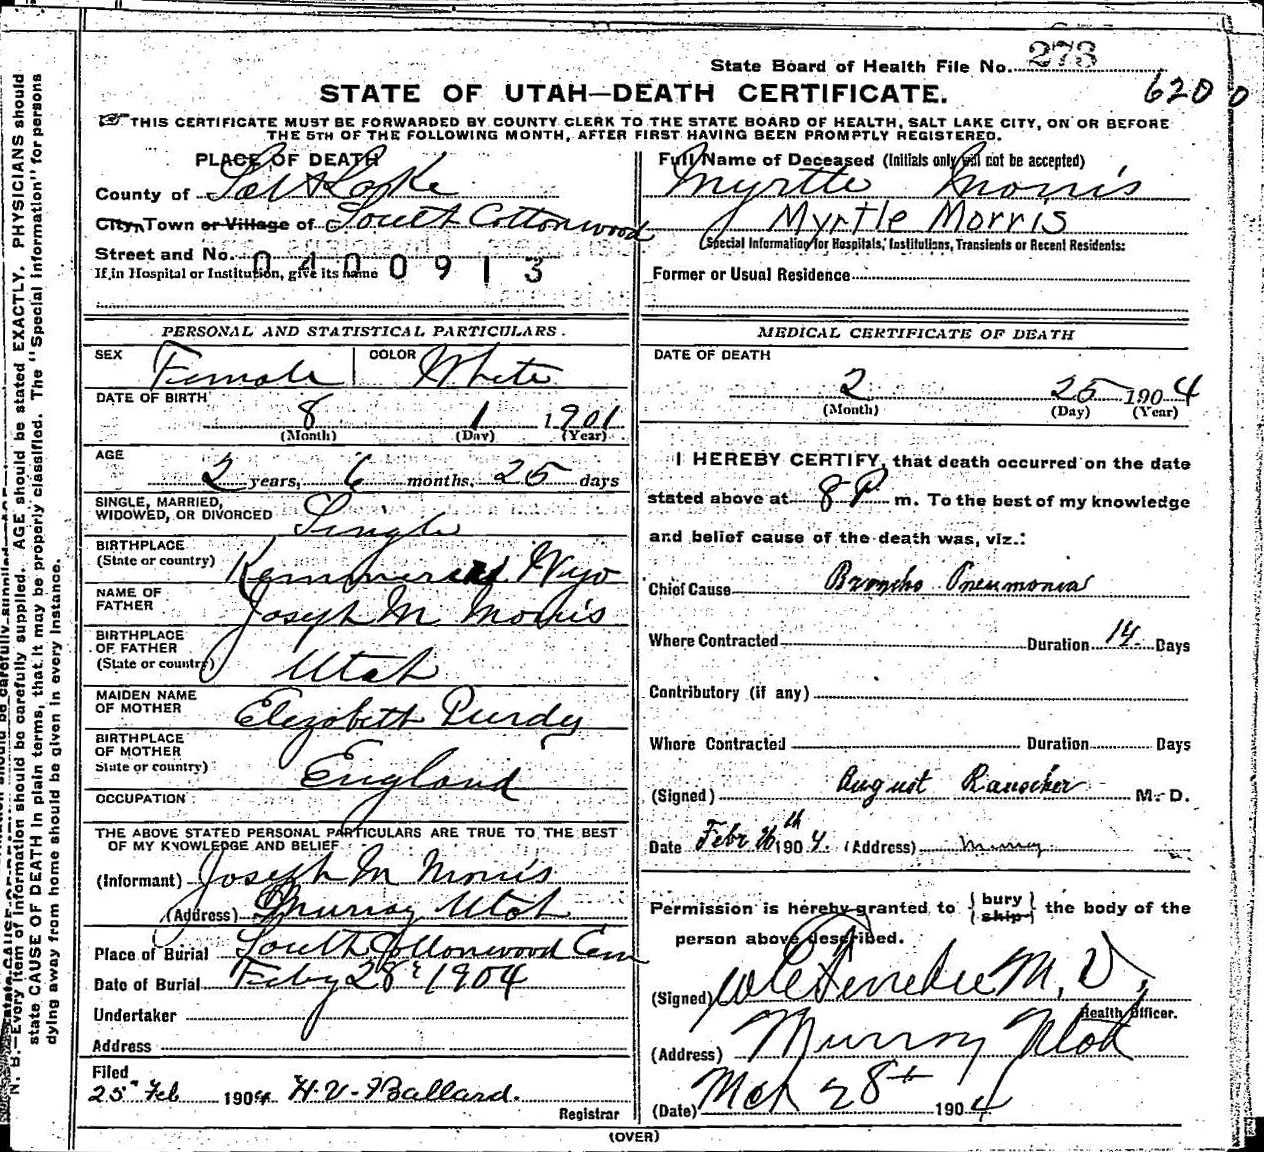 State Board of Health File No. 273
6200
STATE OF UTAH—DEATH CERTIFICATE.
THIS CERTIFICATE MUST BE FORWARDED BY COUNTY CLERK TO THE STATE BOARD OF HEALTH, SALT LAKE CITY, ON OR BEFORE
THE 5TH OF THE FOLLOWING MONTH, AFTER FIRST HAVING BEEN PROMPTLY REGISTERED.
PLACE OF DEATH
County of Salt Lake
City, Town or Village of South Cottonwood
Street and No.
If in Hospital or Institution, give its name
0400913
Full Name of Deceased (Initials only will not be accepted)
Myrtle Morris
Myrtle Morris
Special Information for Hospitals, Institutions, Transients or Recent Residents:
Former or Usual Residence
PERSONAL AND STATISTICAL PARTICULARS.
SEX Female COLOR White
DATE OF BIRTH
8 1 1901
(Month) (Day) (Year)
AGE
2 years, 6 months, 25 days
SINGLE, MARRIED,
WIDOWED, OR DIVORCED Single
BIRTHPLACE
(State or country) Kemmerer Wyo
NAME OF
FATHER Joseph M Morris
BIRTHPLACE
OF FATHER
(State or country) Utah
MAIDEN NAME
OF MOTHER Elizabeth Purdy
BIRTHPLACE
OF MOTHER
State or country) England
OCCUPATION
THE ABOVE STATED PERSONAL PARTICULARS ARE TRUE TO THE BEST
OF MY KNOWLEDGE AND BELIEF
(Informant) Joseph M Morris
(Address) Murray Utah
Place of Burial South Cottonwood Cem
Date of Burial Feby 28 1904
Undertaker
Address
Filed
25 Feb 1904 H. V. Ballard.
Registrar
MEDICAL CERTIFICATE OF DEATH
DATE OF DEATH
2 25 1904
(Month) (Day) (Year)
I HEREBY CERTIFY, that death occurred on the date
stated above at 8 P m. To the best of my knowledge
and belief cause of the death was, viz.:
Chief Cause Broncho Pneumonia
Where Contracted Duration 14 Days
Contributory (if any)
Where Contracted Duration Days
(Signed) August M. D.
Date Febr 26th 1904. (Address) Murray
Permission is hereby granted to {bury
ship} the body of the
person above described.
(Signed) M. D.,
Health Officer.
(Address) Murray Utah
(Date) Mch 28th 1904
(OVER)
N. B.—Every item of information should be carefully supplied. AGE should be stated EXACTLY. PHYSICIANS should
state CAUSE OF DEATH in plain terms, that it may be properly classified. The "Special Information" for persons
dying away from home should be given in every instance.